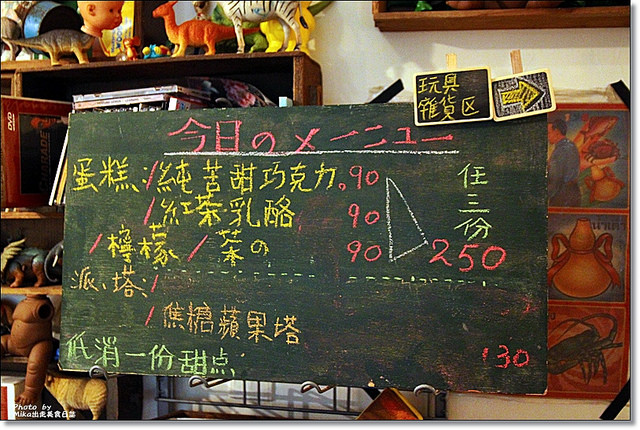 玩具
雜貨区
今日のメニュー
蛋糕:/純苦甜巧克力。90
/紅茶乳酪 90
/檸檬 /茶の 90
任三份
250
派、塔:/
/焦糖蘋果塔
130
低消一份甜点
DVD
Photo by
Mika出走美食日誌